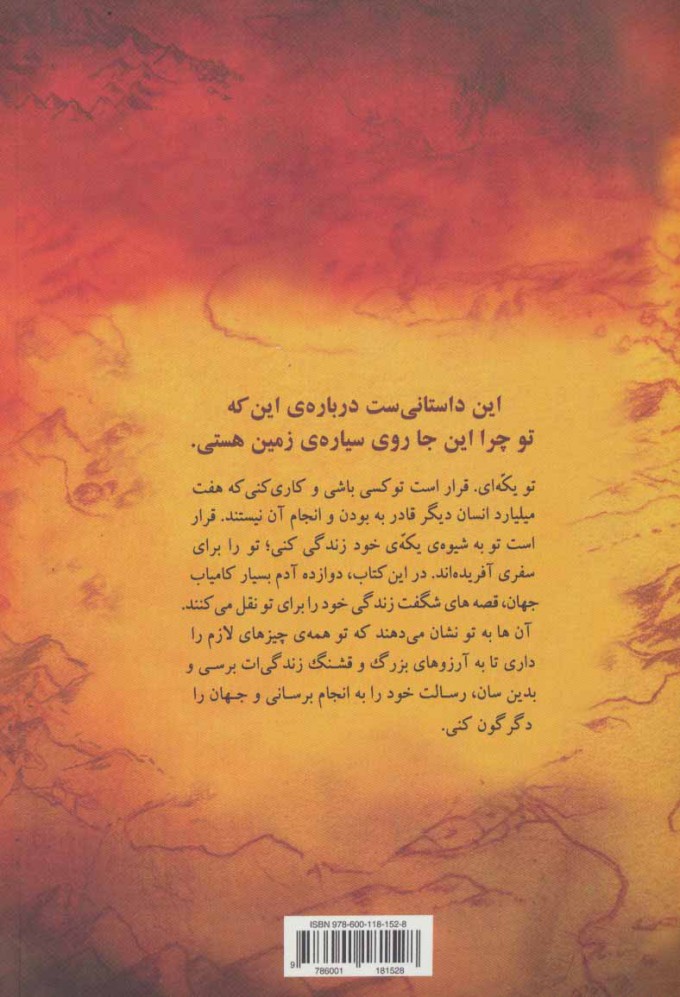 این داستانی‌ست درباره‌ی این که
تو چرا این جا روی سیاره‌ی زمین هستی.
تو یکّه‌ای. قرار است تو کسی باشی و کاری کنی که هفت
میلیارد انسان دیگر قادر به بودن و انجام آن نیستند. قرار
است تو به شیوه‌ی یکّه‌ی خود زندگی کنی؛ تو را برای
سفری آفریده‌اند. در این کتاب، دوازده آدم بسیار کامیاب
جهان، قصه های شگفت زندگی خود را برای تو نقل می‌کنند.
آن ها به تو نشان می‌دهند که تو همه‌ی چیزهای لازم را
داری تا به آرزوهای بزرگ و قشنگ زندگی‌ات برسی و
بدین سان، رسالت خود را به انجام برسانی و جهان را
دگرگون کنی.
ISBN 978-600-118-152-8
9 786001 181528